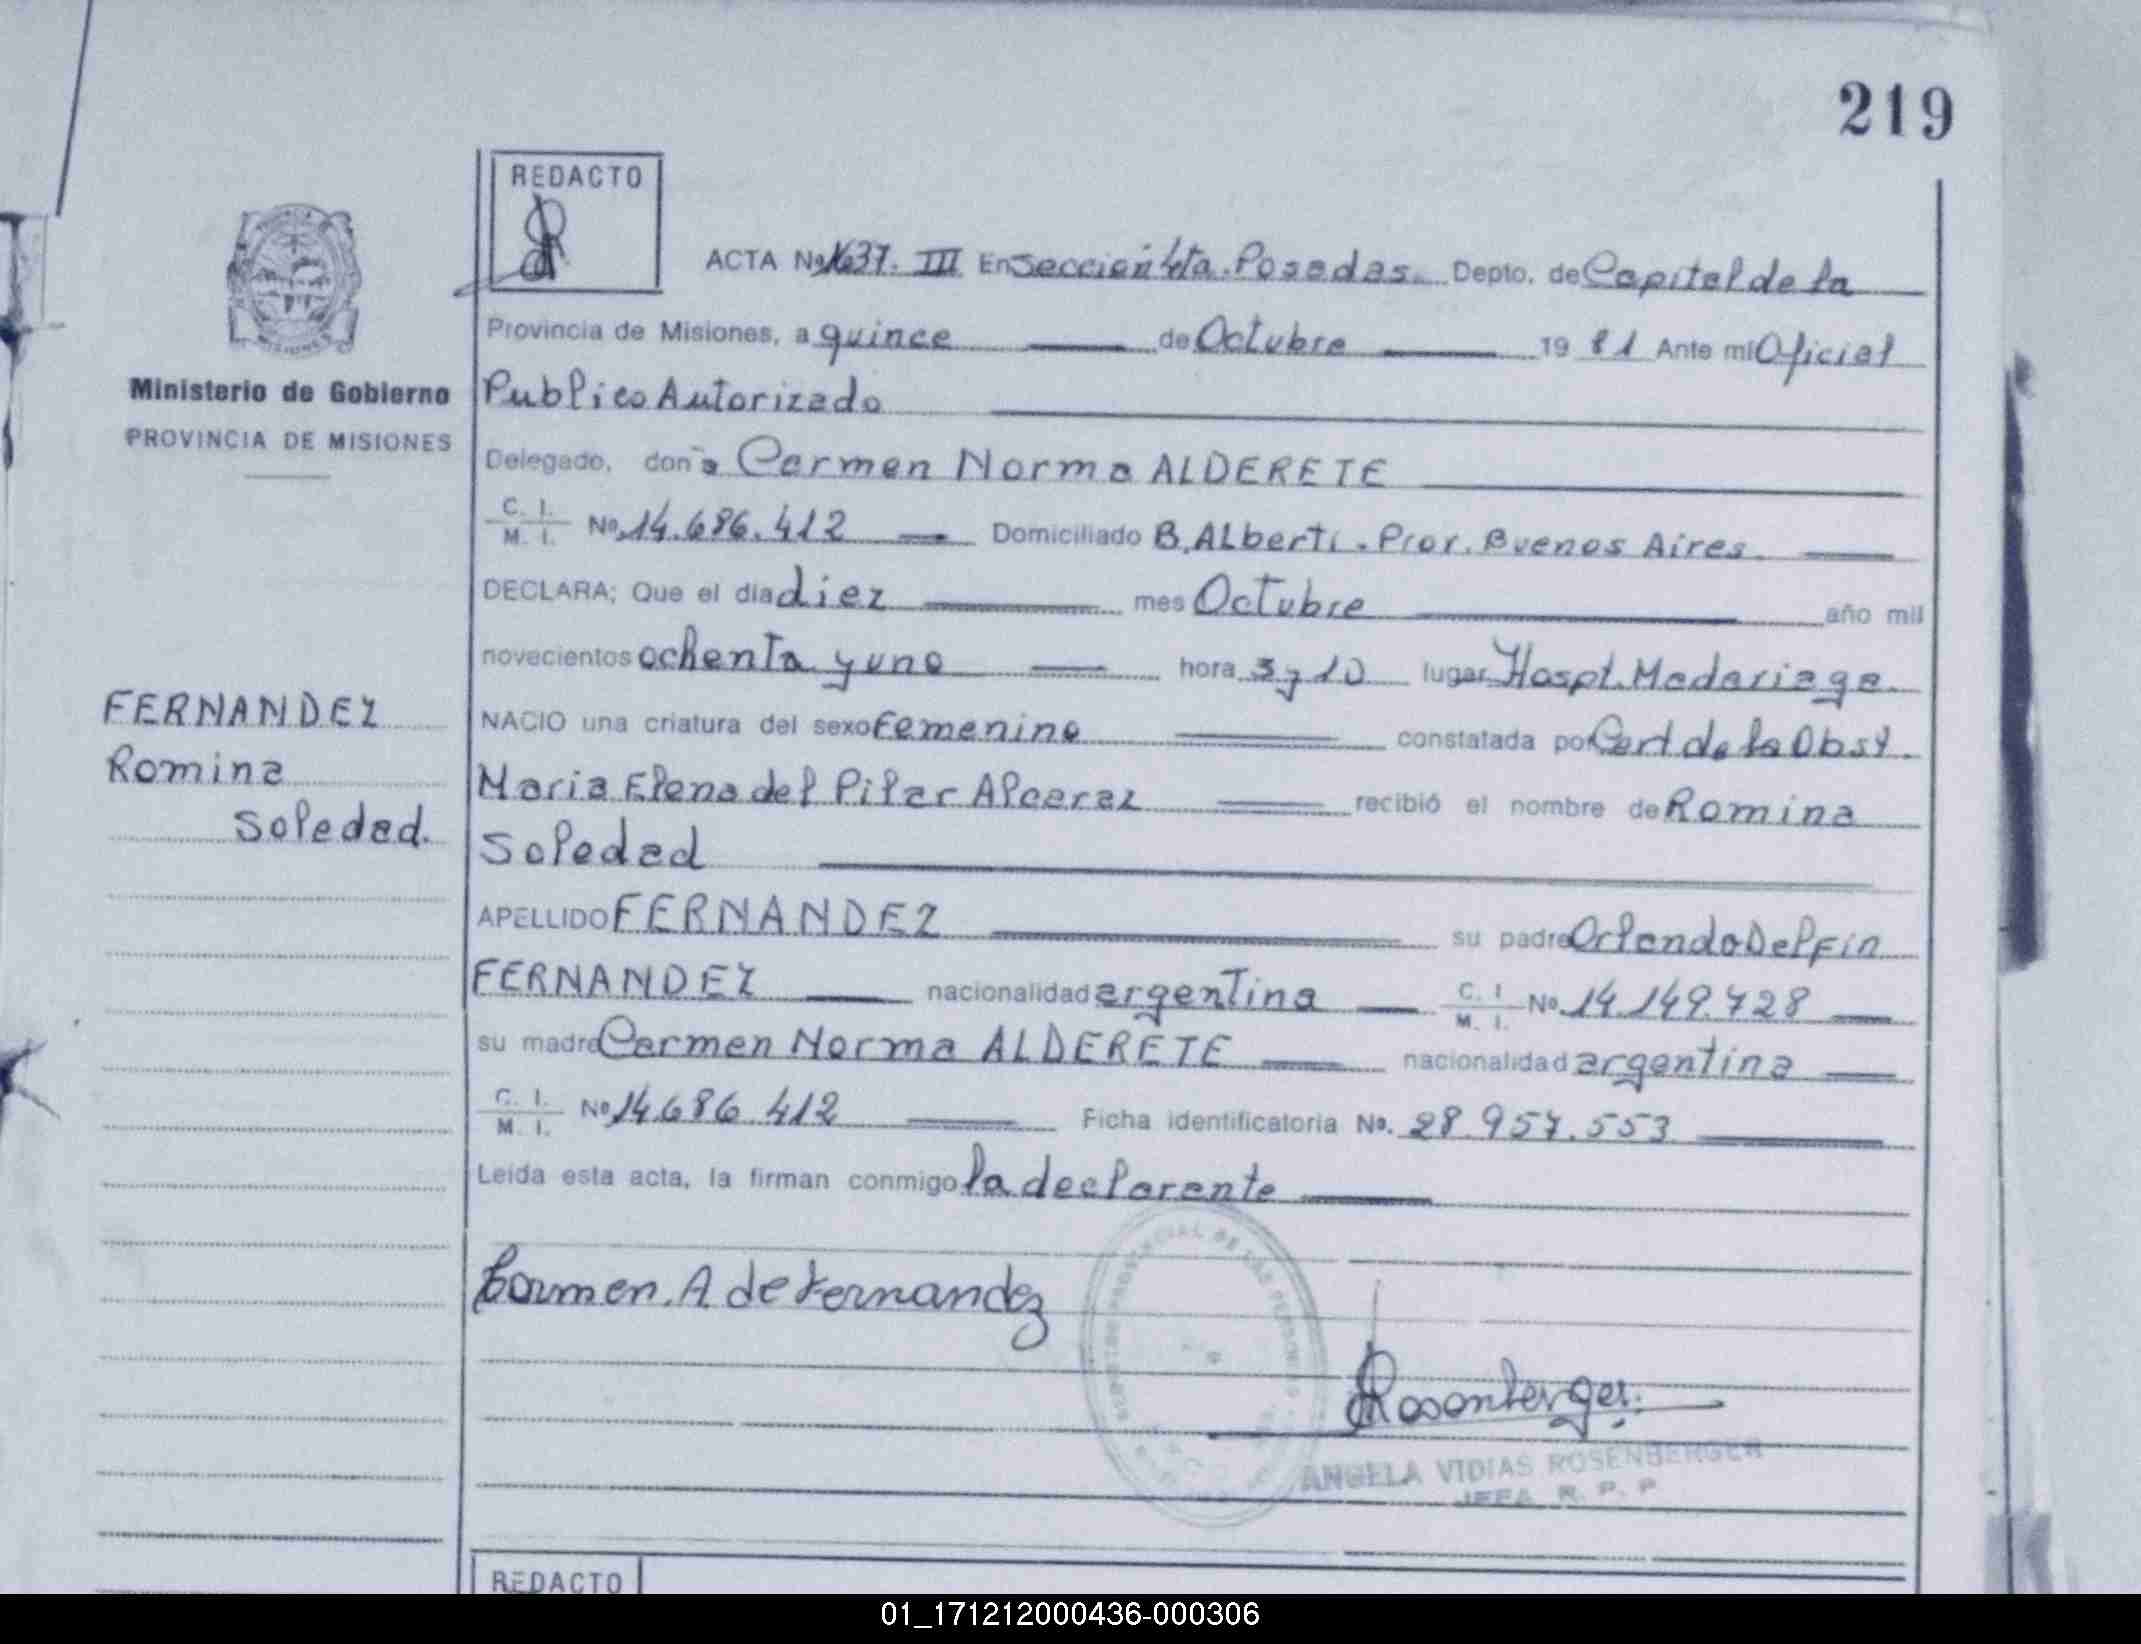 219
REDACTO
ACTA No 1637. III En Sección 4ta. Posadas. Depto. de Capital de la
Provincia de Misiones, a quince de Octubre 19 81 Ante mi Oficial
Publico Autorizado
Delegado, doña Carmen Norma ALDERETE
C. I.
M. I. No. 14.686.412 Domiciliado B. Alberti. Prov. Buenos Aires.
DECLARA; Que el día diez mes Octubre año mil
novecientos ochenta y uno hora 3 y 10 lugar Hospt. Madariaga.
NACIO una criatura del sexo Femenino constatada por Cert de la Obst.
Maria Elena del Pilar Alcaraz recibió el nombre de Romina
Soledad
APELLIDO FERNANDEZ su padre Orlando Delfin
FERNANDEZ nacionalidad argentina C. I.
M. I. No. 14.149.728
su madre Carmen Norma ALDERETE nacionalidad argentina
C. I.
M. I. No 14.686.412 Ficha identificatoria No. 28.957.553
Leída esta acta, la firman conmigo la declarante
Carmen. A. de Fernandez
Rosenberger.
ANGELA VIDIAS ROSENBERGER
JEFA R. P. P.
REDACTO
MISIONES
Ministerio de Gobierno
PROVINCIA DE MISIONES
FERNANDEZ
Romina
Soledad.
01_171212000436-000306